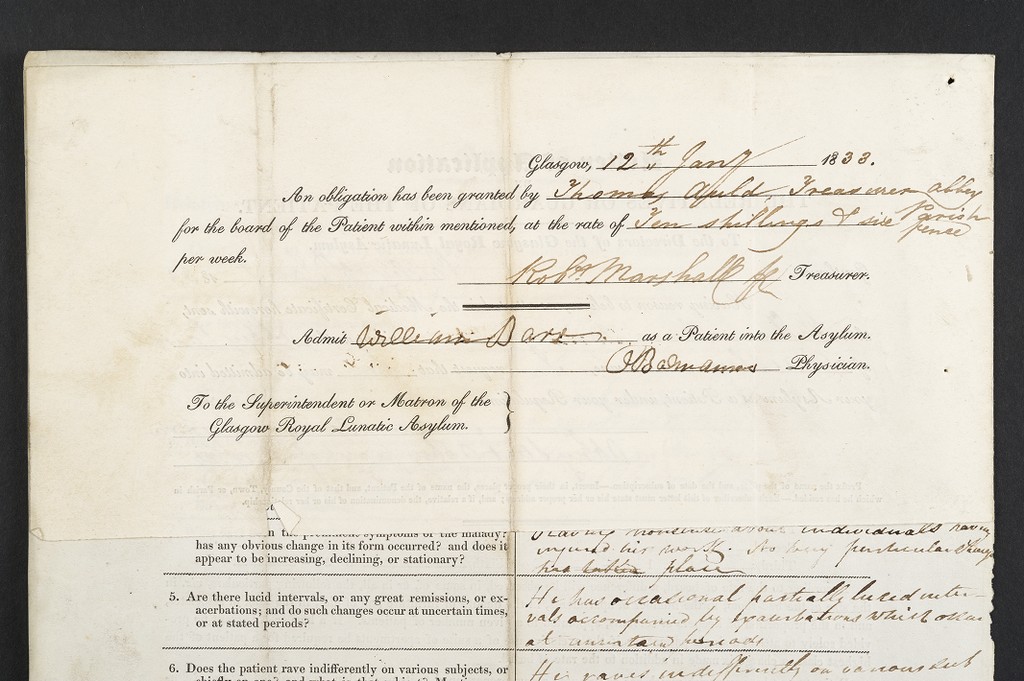 Glasgow, 12th Jany 1833.
An obligation has been granted by Thomas Auld, Treasurer Abbey
Parish
for the board of the Patient within mentioned, at the rate of Ten shillings & six pence
per week.
Robt Marshall Treasurer.
Admit William as a Patient into the Asylum.
Physician.
To the Superintendent or Matron of the
Glasgow Royal Lunatic Asylum.
the prominent symptoms of the malady?
has any obvious change in its form occurred? and does it
appear to be increasing, declining, or stationary?
Raving nonsense about individuals having
injured his work. No very particular change
has taken place
5. Are there lucid intervals, or any great remissions, or ex-
acerbations; and do such changes occur at uncertain times,
or at stated periods?
He has occasional partially lucid inter-
vals accompanied by exacerbations which occur
at uncertain periods
6. Does the patient rave indifferently on various subjects, or
chiefly on one? and what is that subject?
He raves indifferently on various sub